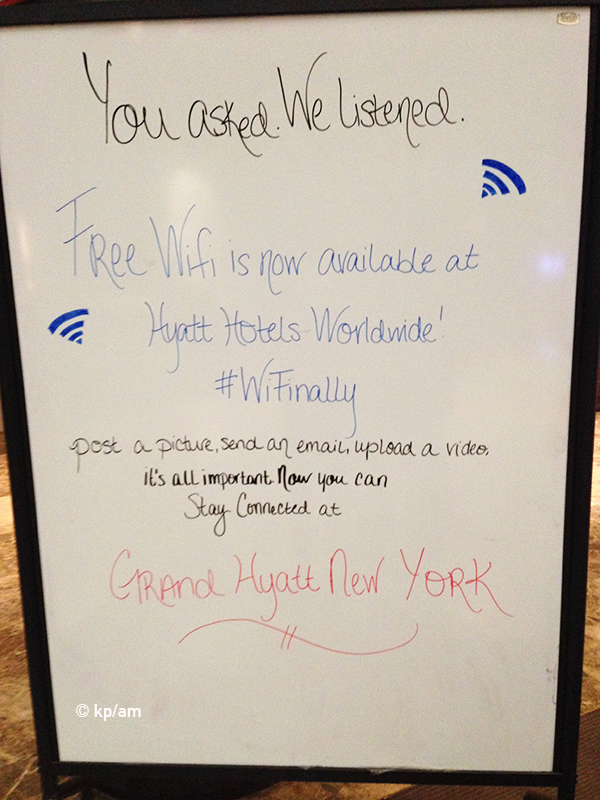 You asked. We Listened.
Free Wifi is now available at
Hyatt Hotels Worldwide!
#WiFinally
post a picture, send an email, upload a video,
it's all important. Now you can
Stay Connected at
GRAnd Hyatt New YORK
© kp/am